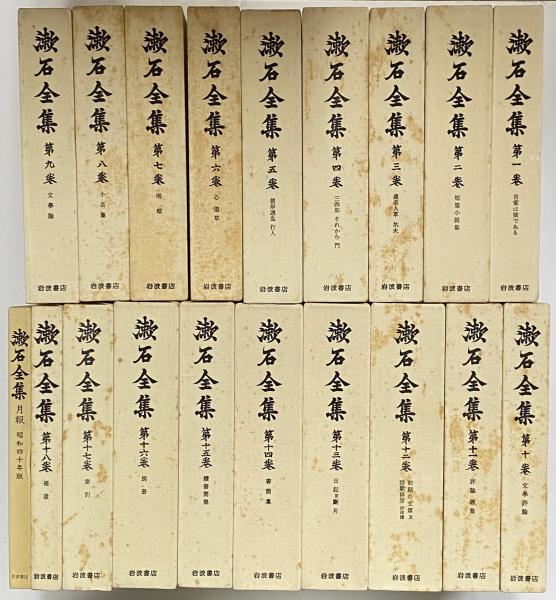 漱石全集 第一卷 吾輩は猫である 岩波書店
漱石全集 第二卷 短篇小説集 岩波書店
漱石全集 第三卷 虞美人草 坑夫 岩波書店
漱石全集 第四卷 三四郎 それから 門 岩波書店
漱石全集 第五卷 彼岸過迄 行人 岩波書店
漱石全集 第六卷 心 道草 岩波書店
漱石全集 第七卷 明暗 岩波書店
漱石全集 第八卷 小品集 岩波書店
漱石全集 第九卷 文學論 岩波書店
漱石全集 第十卷 文學評論 岩波書店
漱石全集 第十一卷 評論 雜篇 岩波書店
漱石全集 第十二卷 初期の文章及詩歌俳句 岩波書店
漱石全集 第十三卷 日記及斷片 岩波書店
漱石全集 第十四卷 書簡集 岩波書店
漱石全集 第十五卷 續書簡集 岩波書店
漱石全集 第十六卷 別册 岩波書店
漱石全集 第十七卷 索引 岩波書店
漱石全集 第十八卷 補遺 岩波書店
漱石全集 月報 昭和四十年版 岩波書店